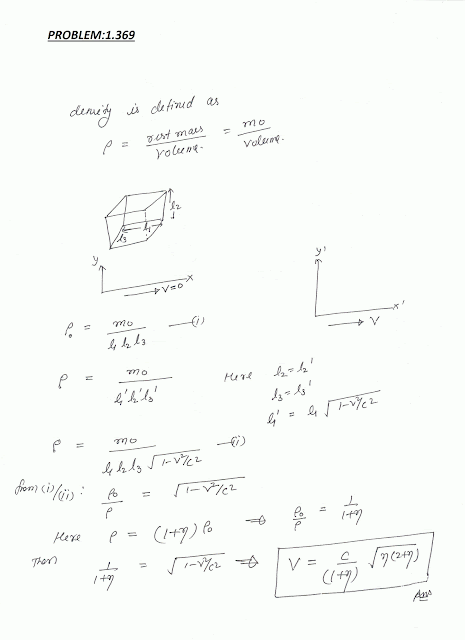 PROBLEM:1.369
density is defined as
ρ = rest mass / Volume. = mo / Volume.
l2
l3 l1
y
x
→ V=0
y'
x'
→ V
ρ₀ = mo / l1 l2 l3 —(i)
ρ = mo / l1' l2' l3'
Here l2 = l2'
l3 = l3'
l1' = l1 √1-v²/c2
ρ = mo / l1 l2 l3 √1-v²/c2 —(ii)
from (i)/(ii) : ρ₀/ρ = √1-v²/c2
Here ρ = (1+η) ρ₀ ⇒ ρ₀/ρ = 1/1+η
Then 1/1+η = √1-v²/c2 ⇒ V = c/(1+η) √η(2+η)
Ans